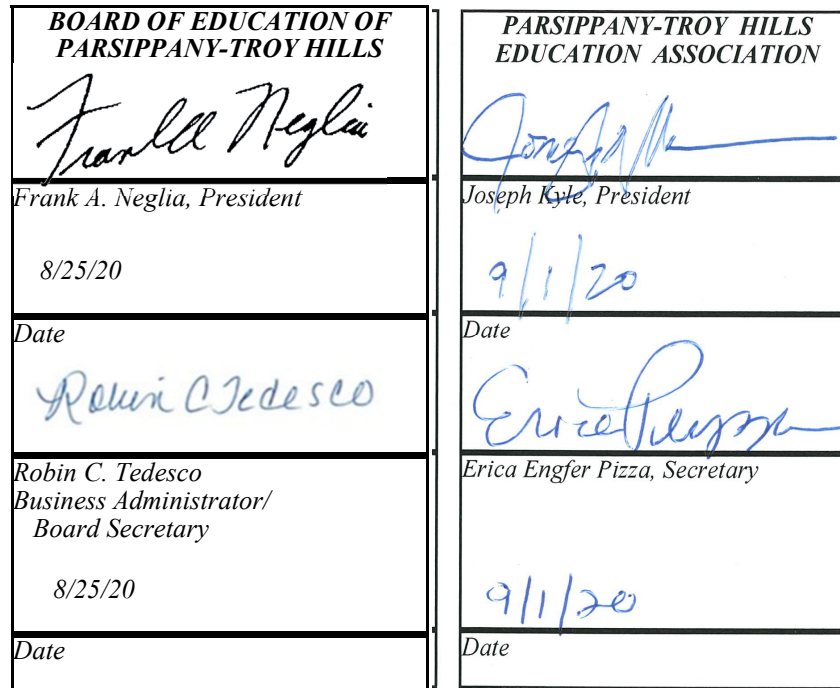 BOARD OF EDUCATION OF
PARSIPPANY-TROY HILLS
Frank A Neglia
Frank A. Neglia, President
8/25/20
Date
Robin C Tedesco
Robin C. Tedesco
Business Administrator/
Board Secretary
8/25/20
Date
PARSIPPANY-TROY HILLS
EDUCATION ASSOCIATION
Joseph Kyle, President
9/1/20
Date
Erica
Erica Engfer Pizza, Secretary
9/1/20
Date